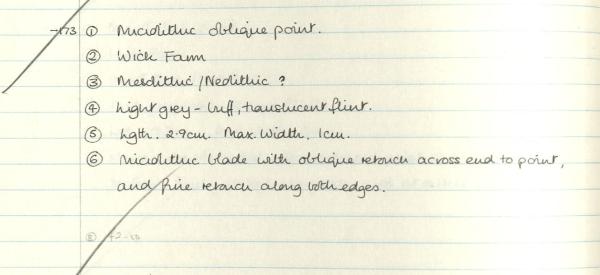 -173 ① Microlithic oblique point.
② Wick Farm
③ Mesolithic / Neolithic ?
④ Light grey - buff, translucent flint.
⑤ Lgth. 2.9cm. Max. Width. 1cm.
⑥ Microlithic blade with oblique retouch across end to point,
and fine retouch along both edges.